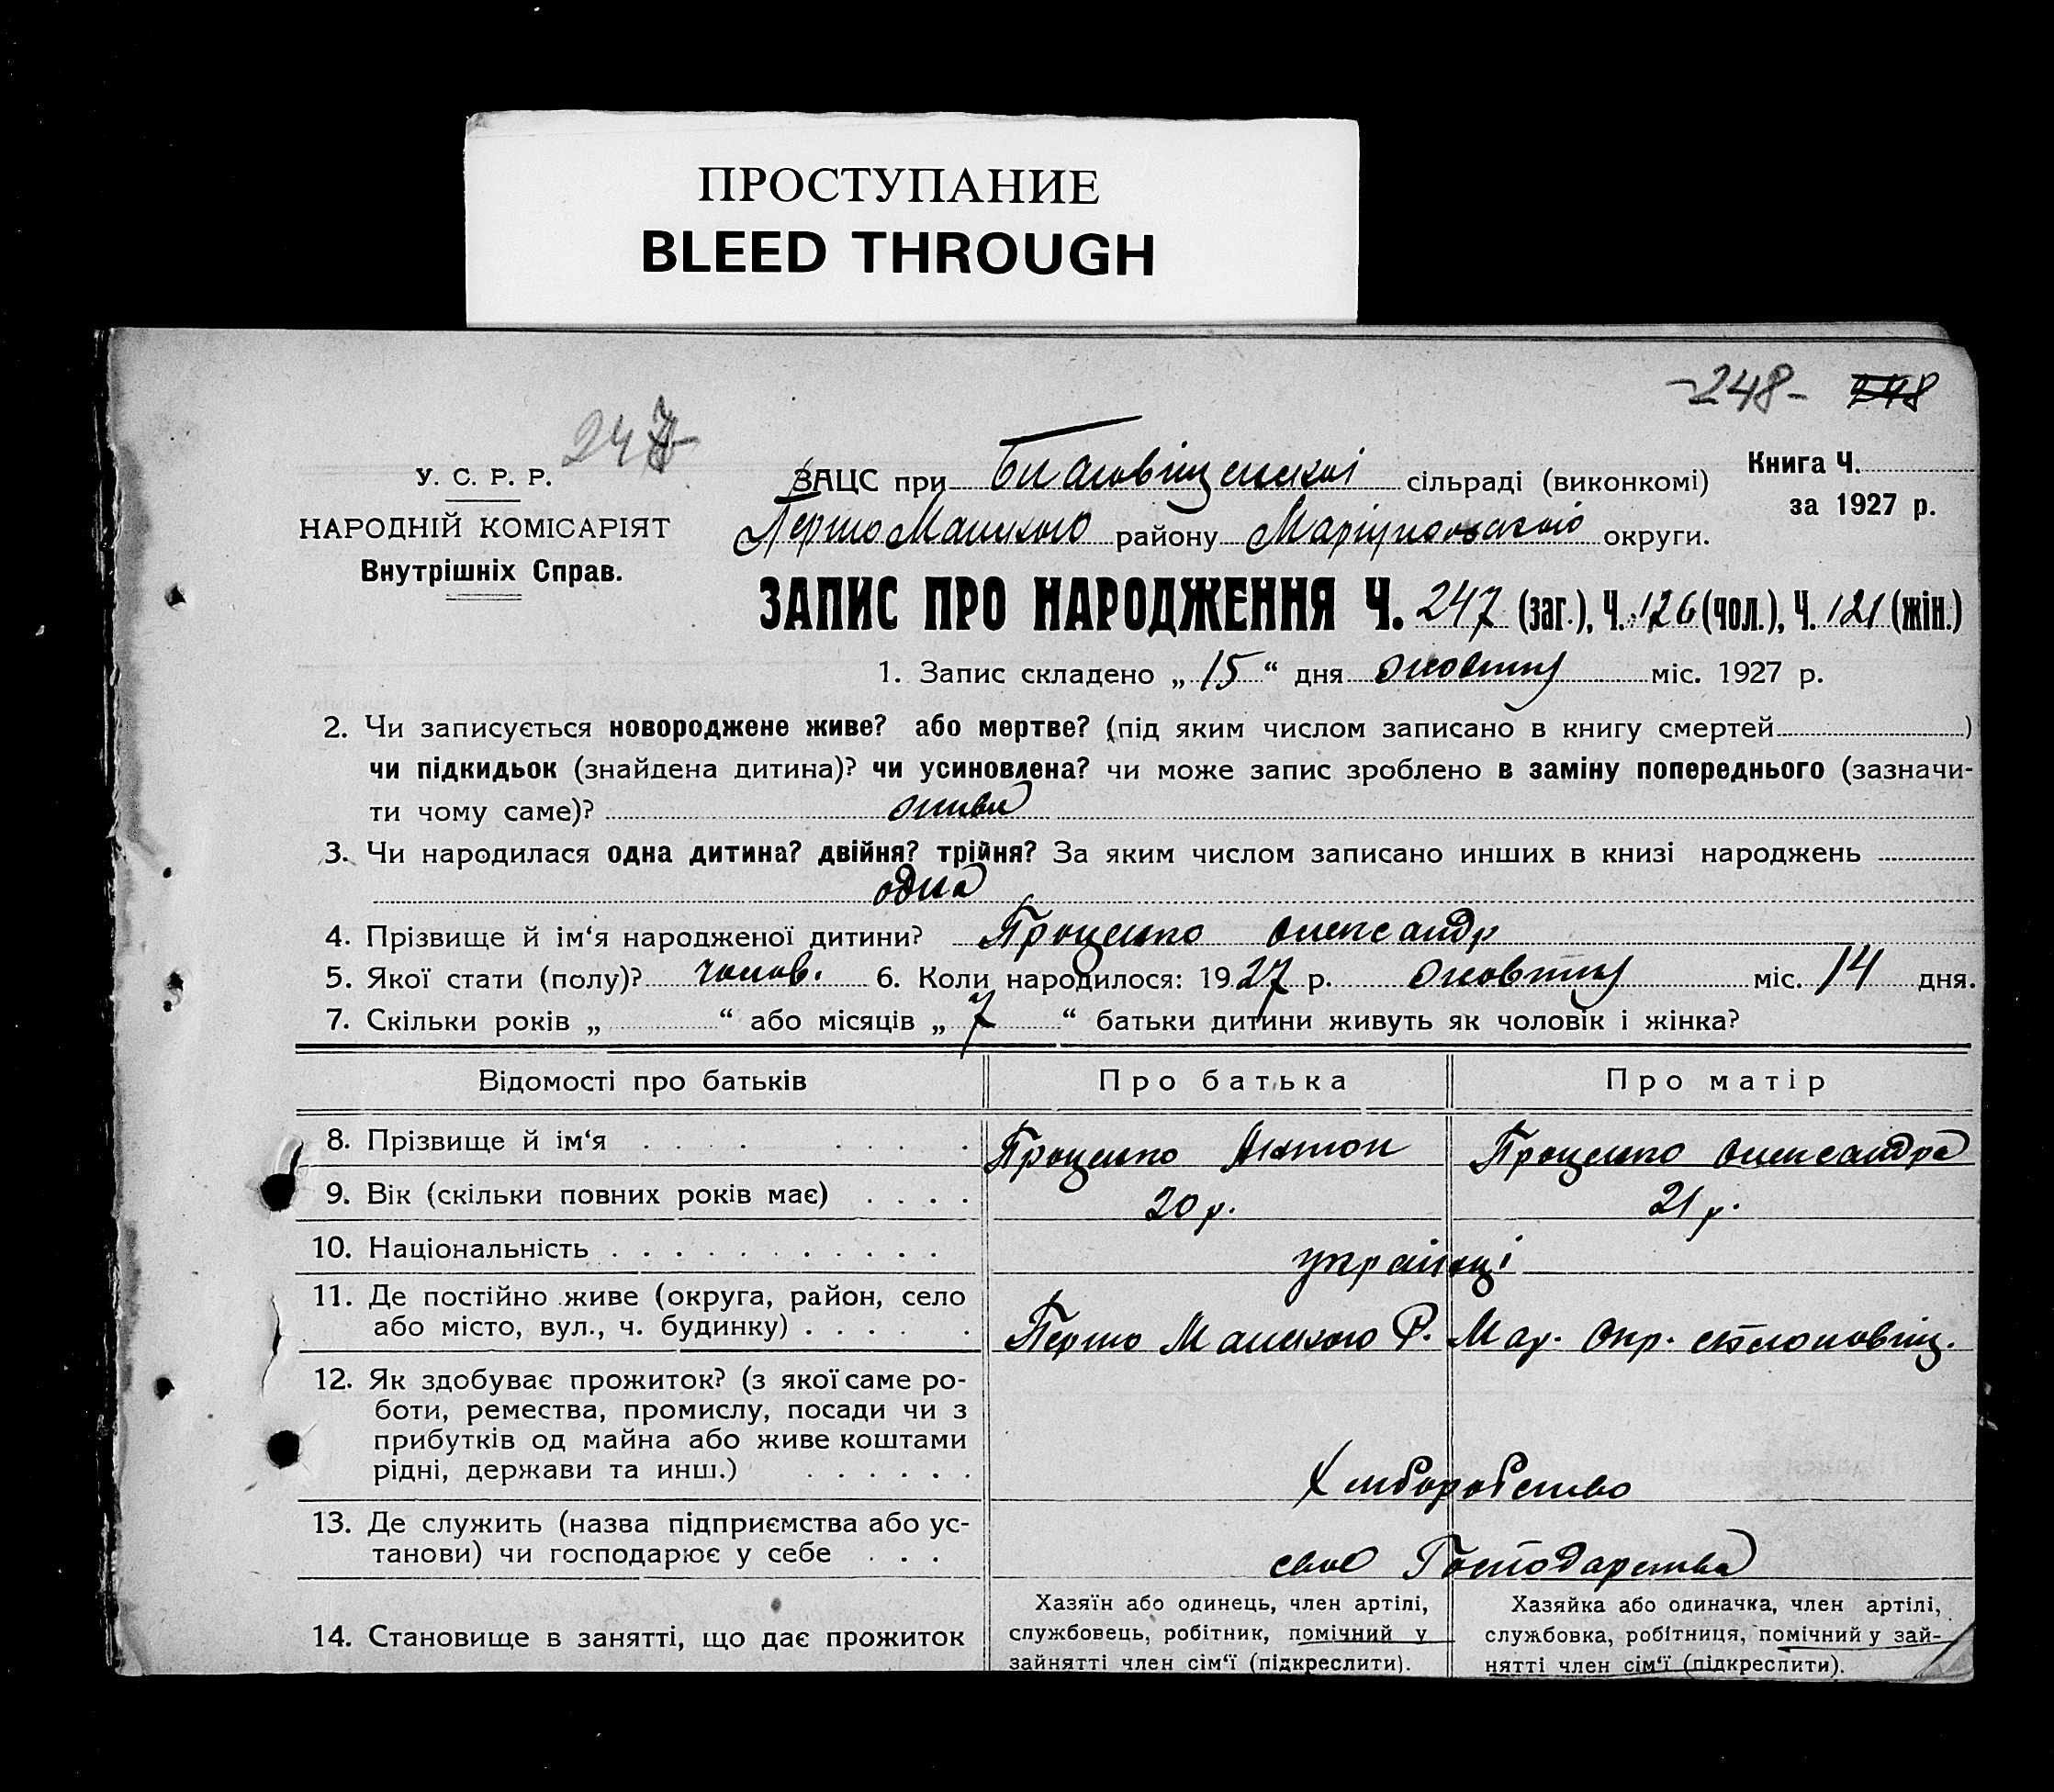 ПРОСТУПАНИЕ
BLEED THROUGH
-248- 248
247
У. С. Р. Р.
НАРОДНІЙ КОМІСАРІЯТ
Внутрішніх Справ.
ЗАЦС при Благовіщенскоі сільраді (виконкомі)
Книга Ч.
за 1927 р.
району Маріупольскоі округи.
ЗАПИС ПРО НАРОДЖЕННЯ Ч. 247 (заг.), Ч. 126 (чол.), Ч. 121 (жін.)
1. Запис складено „ 15 “ дня жовтня міс. 1927 р.
2. Чи записується новороджене живе? або мертве? (під яким числом записано в книгу смертей )
чи підкидьок (знайдена дитина)? чи усиновлена? чи може запис зроблено в заміну попереднього (зазначи-
ти чому саме)? жива
3. Чи народилася одна дитина? двійня? трійня? За яким числом записано инших в книзі народжень
одна
4. Прізвище й ім‘я народженої дитини? Проценко Олександр
5. Якої стати (полу)? чолов. 6. Коли народилося: 1927 р. жовтня міс. 14 дня.
7. Скільки років „ “ або місяців „ 7 “ батьки дитини живуть як чоловік і жінка?
Відомості про батьків Про батька Про матір
8. Прізвище й ім‘я . . . . . . . . Проценко Антон Проценко Олександра
9. Вік (скільки повних років має) . . . . 20 р. 21 р.
10. Національність . . . . . . . . . . . українці
11. Де постійно живе (округа, район, село
або місто, вул., ч. будинку) . . . . . . Р. Мар. Окр.
12. Як здобуває прожиток? (з якої саме ро-
боти, ремества, промислу, посади чи з
прибутків од майна або живе коштами
рідні, держави та инш.) . . . . . .
Хліборобство
13. Де служить (назва підприємства або ус-
танови) чи господарює у себе . . .
своє Господарства
14. Становище в занятті, що дає прожиток
Хазяїн або одинець, член артілі,
службовець, робітник, помічний у
зайнятті член сім‘ї (підкреслити).
Хазяйка або одиначка, член артілі,
службовка, робітниця, помічний у зай-
нятті член сім‘ї (підкреслити).